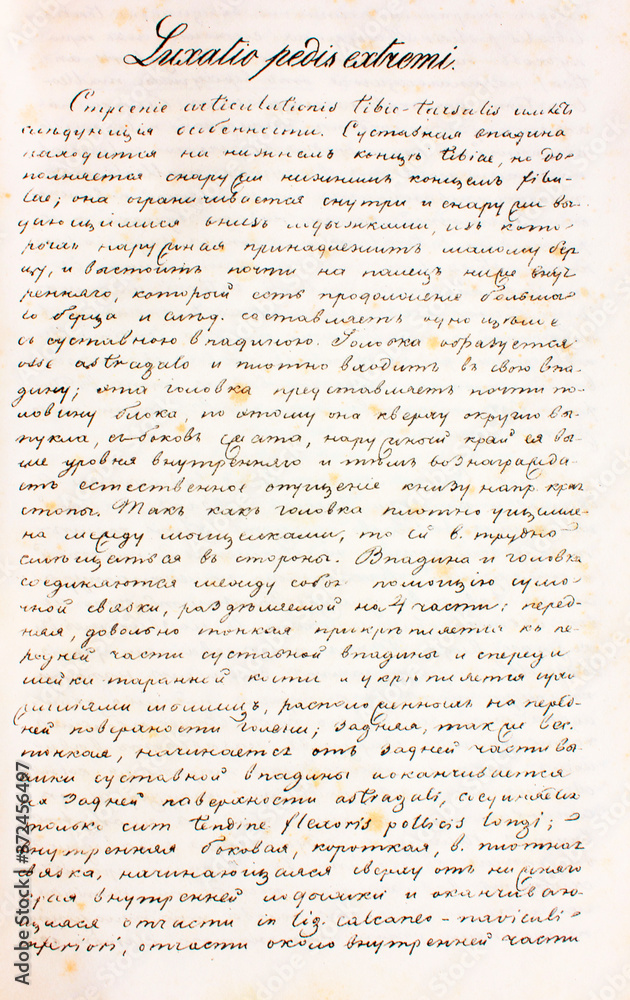 Luxatio pedis extremi.
Строенiе articulationis tibio-tarsalis имѣетъ
слѣдующiя особенности. Суставная впадина
находится на нижнемъ концѣ tibiae, но до-
полняется снаружи нижнимъ концемъ fibu-
lae; она ограничивается снутри и снаружи вы-
дающимися внизъ лодыжками, изъ кото-
рыхъ наружная принадлежитъ малому бер-
цу, и выстоитъ почти на палецъ ниже внут
ренняго, который есть продолженiе больша-
го берца и слѣд. составляетъ одно цѣлое
съ суставною впадиною. Головка образуется
osse astragalo и плотно входитъ въ свою впа-
дину; эта головка представляетъ почти по-
ловину блока, по этому она кверху округло вы-
пукла, съ боковъ сжата, наружный край ея вы-
ше уровня внутренняго и тѣмъ вознагражда-
етъ естественное опущенiе книзу напр. края
стопы. Такъ какъ головка плотно ущемле-
на между мыщелками, то ей в. трудно
смѣщаться въ стороны. Впадина и головка
соединяются между собою помощiю сумо-
чной связки, раздѣляемой на 4 части: перед-
няя, довольно тонкая прикрѣпляется къ пе-
редней части суставной впадины и спереди
шейки таранной кости и укрѣпляется сухо
жилiями мышицъ, расположенныхъ на перед-
ней поверхности голени; задняя, также
тонкая, начинается отъ задней части вы-
суставной впадины и оканчивается
на задней поверхности astragali, соединяясь
только cum tendine flexoris pollicis longi;
внутренняя боковая, короткая, в. плотная
связка, начинающаяся сверху отъ нижняго
края внутренней лодыжки и оканчиваю-
щаяся отчасти in lig. calcaneo-naviculi
inferiori, отчасти около внутренней части